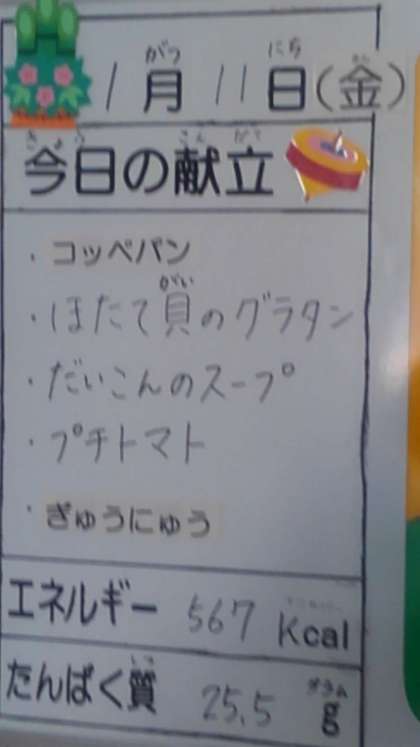 1月11日(金)
今日の献立
・コッペパン
・ほたて貝のグラタン
・だいこんのスープ
・プチトマト
・ぎゅうにゅう
エネルギー 567 Kcal
たんぱく質 25.5 g